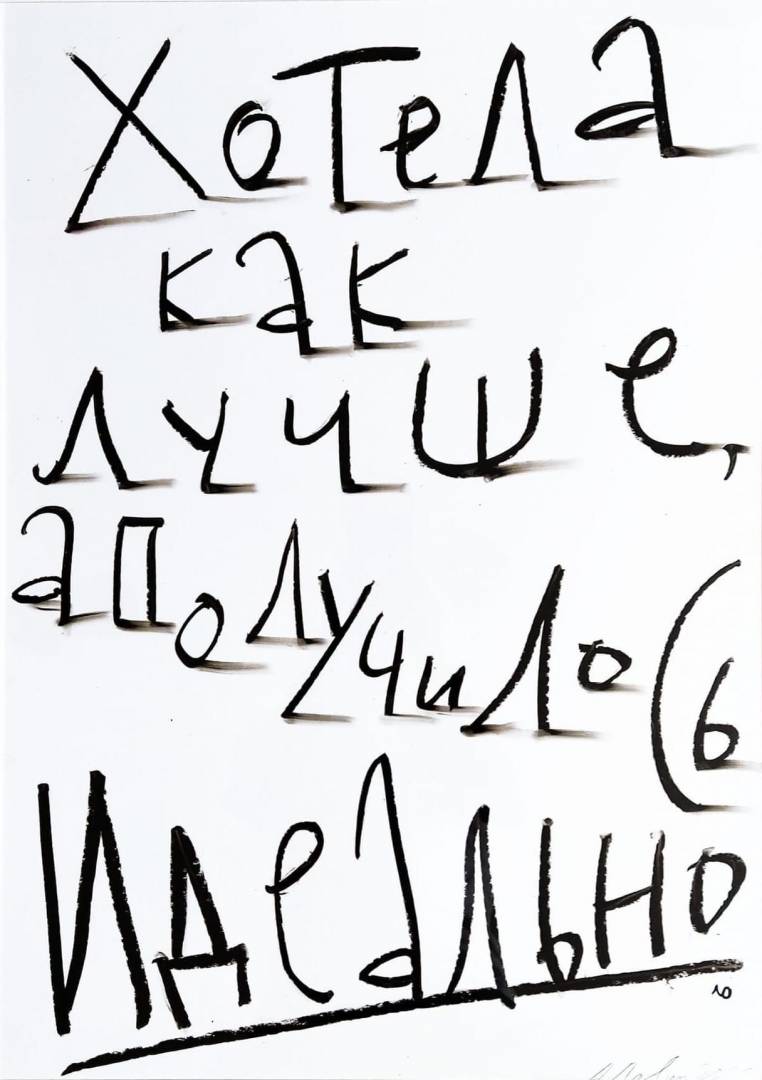 Хотела
как
лучше,
а получилось
идеально